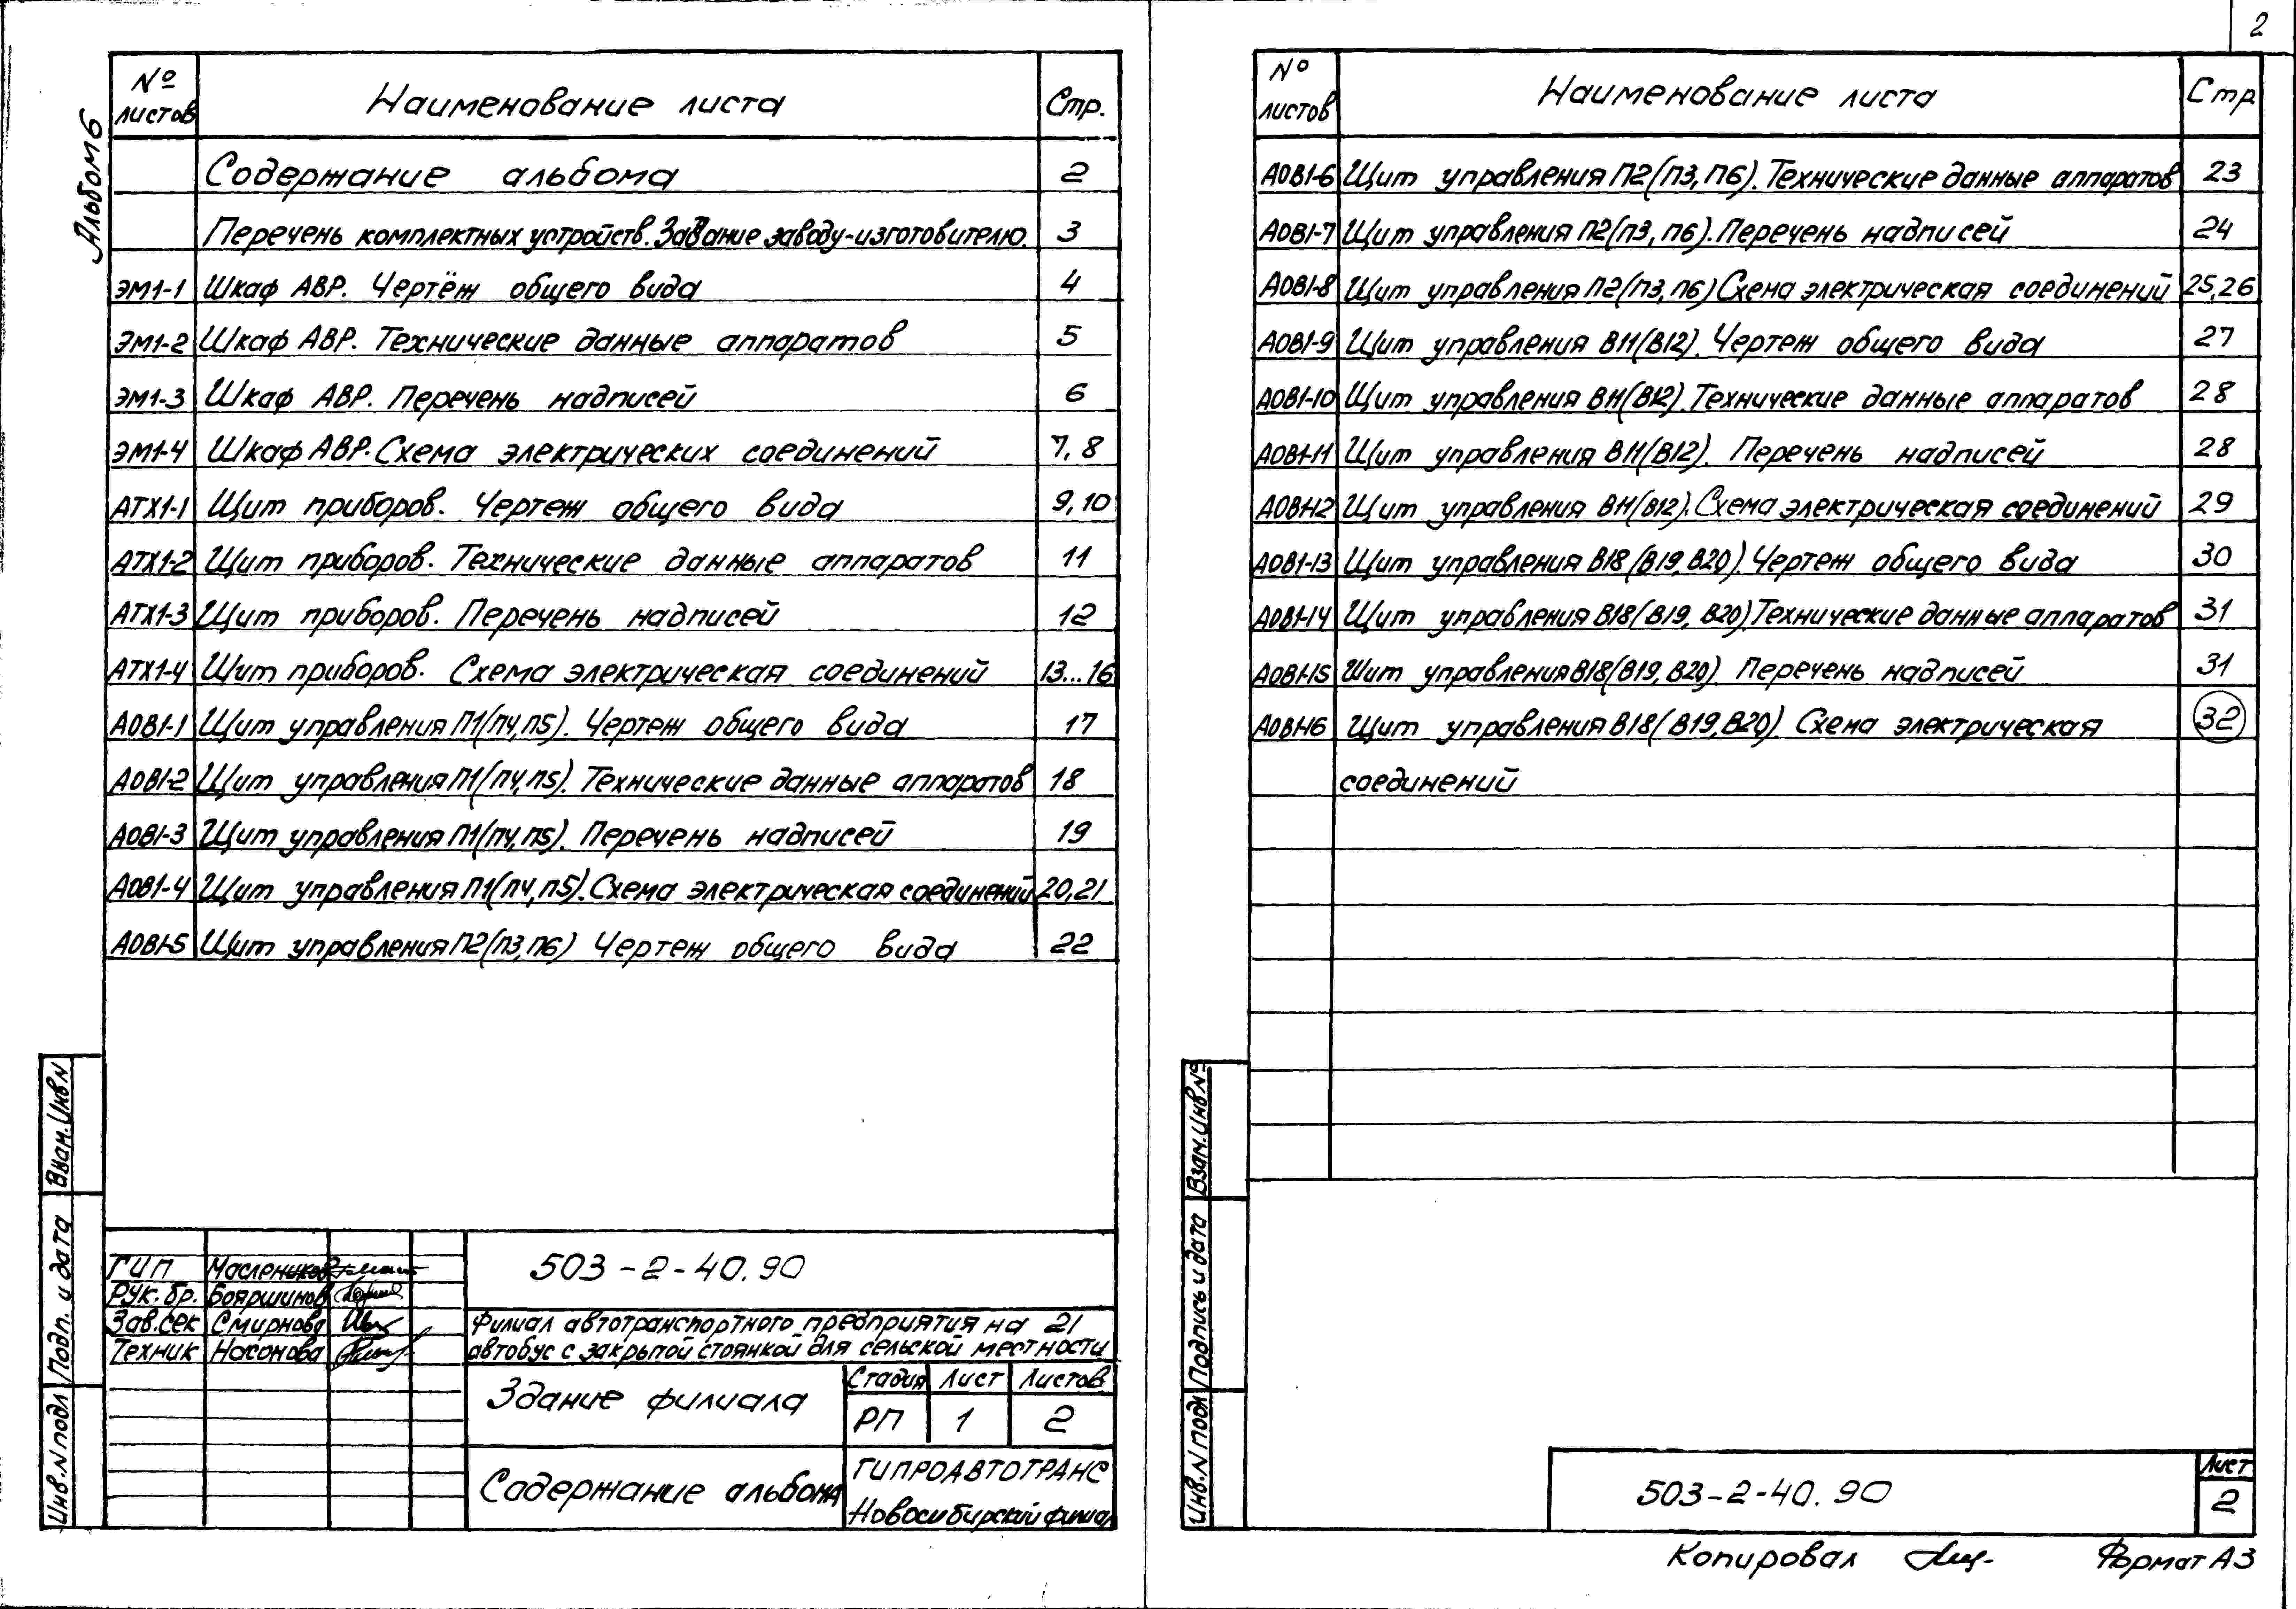 2
Альбом 6
№ листов Наименование листа Стр.
Содержание альбома 2
Перечень комплектных устройств. Задание заводу-изготовителю. 3
ЭМ1-1 Шкаф АВР. Чертёж общего вида 4
ЭМ1-2 Шкаф АВР. Технические данные аппаратов 5
ЭМ1-3 Шкаф АВР. Перечень надписей 6
ЭМ1-4 Шкаф АВР. Схема электрических соединений 7, 8
АТХ1-1 Щит приборов. Чертеж общего вида 9, 10
АТХ1-2 Щит приборов. Технические данные аппаратов 11
АТХ1-3 Щит приборов. Перечень надписей 12
АТХ1-4 Щит приборов. Схема электрическая соединений 13...16
АОВ1-1 Щит управления П1(П4,П5). Чертеж общего вида 17
АОВ1-2 Щит управления П1(П4,П5). Технические данные аппаратов 18
АОВ1-3 Щит управления П1(П4,П5). Перечень надписей 19
АОВ1-4 Щит управления П1(П4,П5). Схема электрическая соединений 20,21
АОВ1-5 Щит управления П2(П3,П6) Чертеж общего вида 22
Взам. Инв N
Подп. и дата
Инв. N подл
ГИП Маслеников
Рук. бр. Бояршинов
Зав. сек Смирнова
Техник Насонова
503-2-40.90
Филиал автотранспортного предприятия на 21
автобус с закрытой стоянкой для сельской местности
Здание филиала
Стадия Лист Листов
РП 1 2
Содержание альбома
ГИПРОАВТОТРАНС
Новосибирский филиал
№ листов Наименование листа Стр
АОВ1-6 Щит управления П2(П3, П6). Технические данные аппаратов 23
АОВ1-7 Щит управления П2(П3, П6). Перечень надписей 24
АОВ1-8 Щит управления П2(П3, П6) Схема электрическая соединений 25,26
АОВ1-9 Щит управления В11(В12). Чертеж общего вида 27
АОВ1-10 Щит управления В11(В12). Технические данные аппаратов 28
АОВ1-11 Щит управления В11(В12). Перечень надписей 28
АОВ1-12 Щит управления В11(В12). Схема электрическая соединений 29
АОВ1-13 Щит управления В18(В19, В20). Чертеж общего вида 30
АОВ1-14 Щит управления В18(В19, В20). Технические данные аппаратов 31
АОВ1-15 Щит управления В18(В19, В20). Перечень надписей 31
АОВ1-16 Щит управления В18(В19,В20). Схема электрическая 32
соединений
Взам. Инв №
Подпись и дата
Инв. N подл
503-2-40.90
Лист
2
Копировал
Формат А3